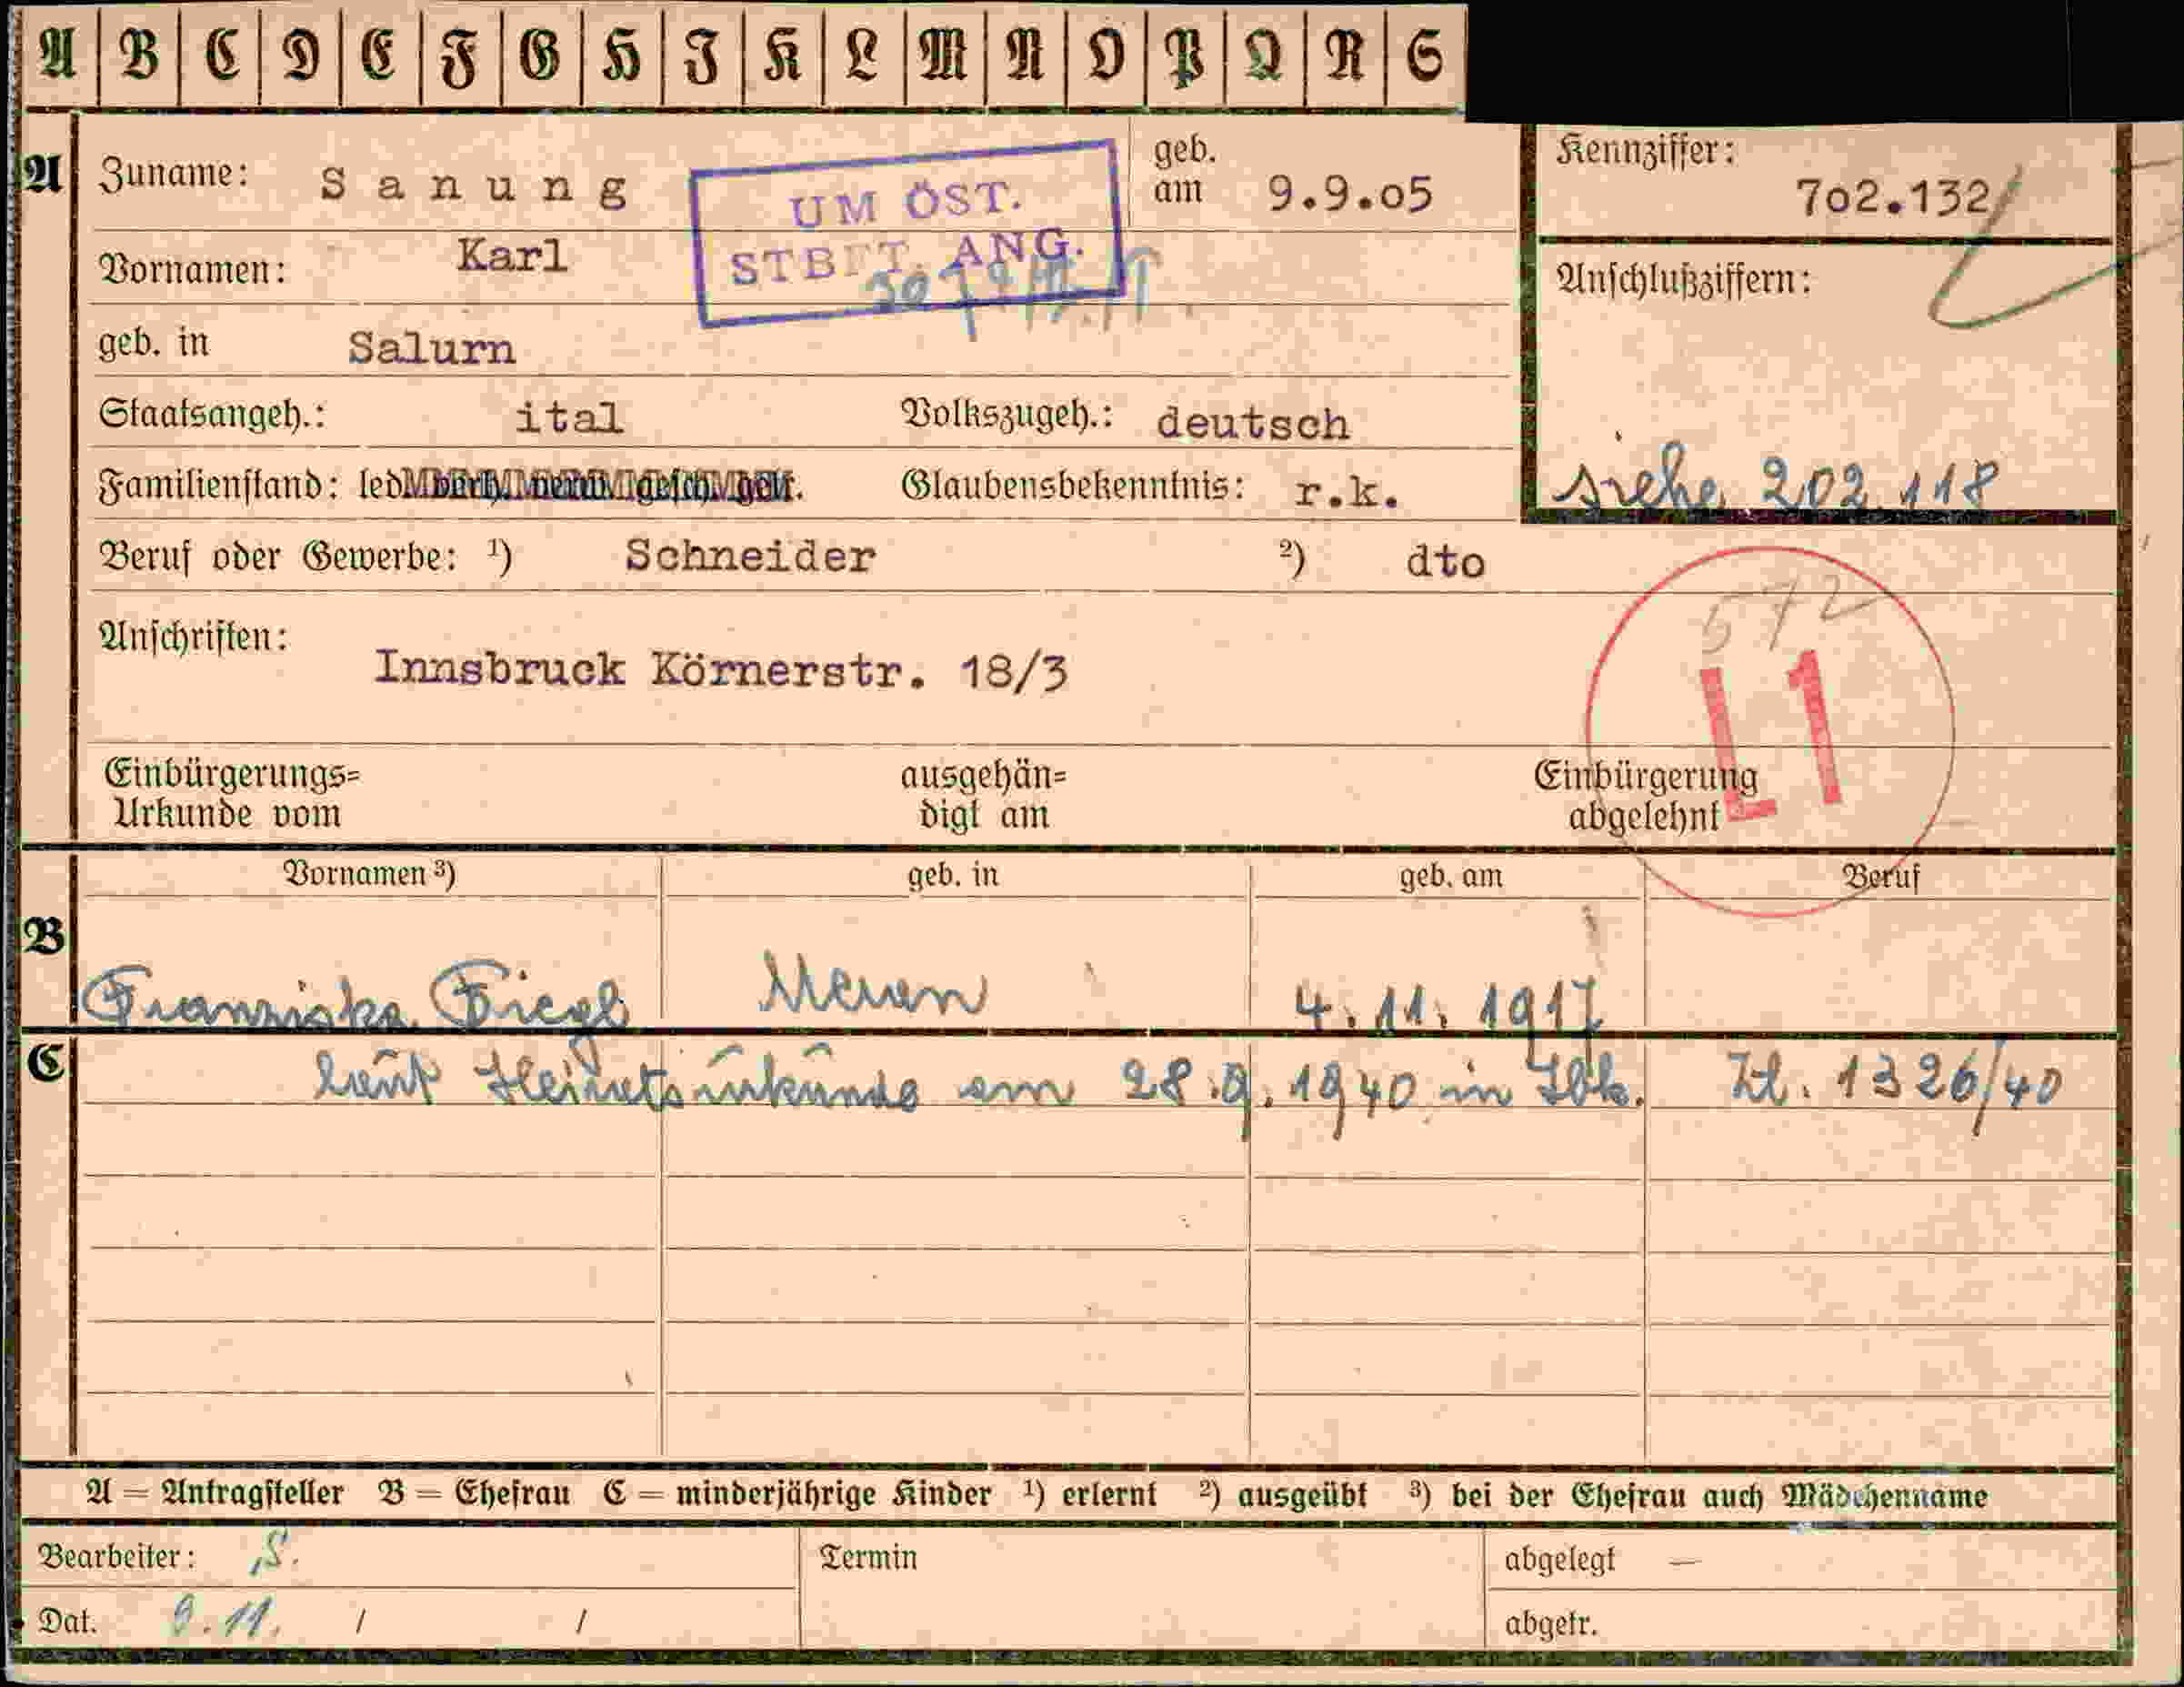 A B C D E F G H I K L M N O P Q R S
A Zuname: Sanung geb. am 9.9.05 Kennziffer: 702.132
UM ÖST.
STBFT. ANG.
Vornamen: Karl
Anschlußziffern:
geb. in Salurn
Staatsangeh.: ital Volkszugeh.: deutsch
Familienstand: led. verh. verw. gesch. getr. Glaubensbekenntnis: r.k. siehe 202 118
Beruf oder Gewerbe: ¹) Schneider ²) dto
572
Anschriften: Innsbruck Körnerstr. 18/3
L1
Einbürgerungs= ausgehän= Einbürgerung
Urkunde vom digt am abgelehnt
Vornamen ³) geb. in geb. am Beruf
B Franziska Fiegl Meran 4.11.1917
C laut Heiratsurkunde am 28.9.1940 in Ibk. Zl. 1326/40
A = Antragsteller B = Ehefrau C = minderjährige Kinder ¹) erlernt ²) ausgeübt ³) bei der Ehefrau auch Mädchenname
Bearbeiter: S. Termin abgelegt —
Dat. 9.11. / / abgetr.